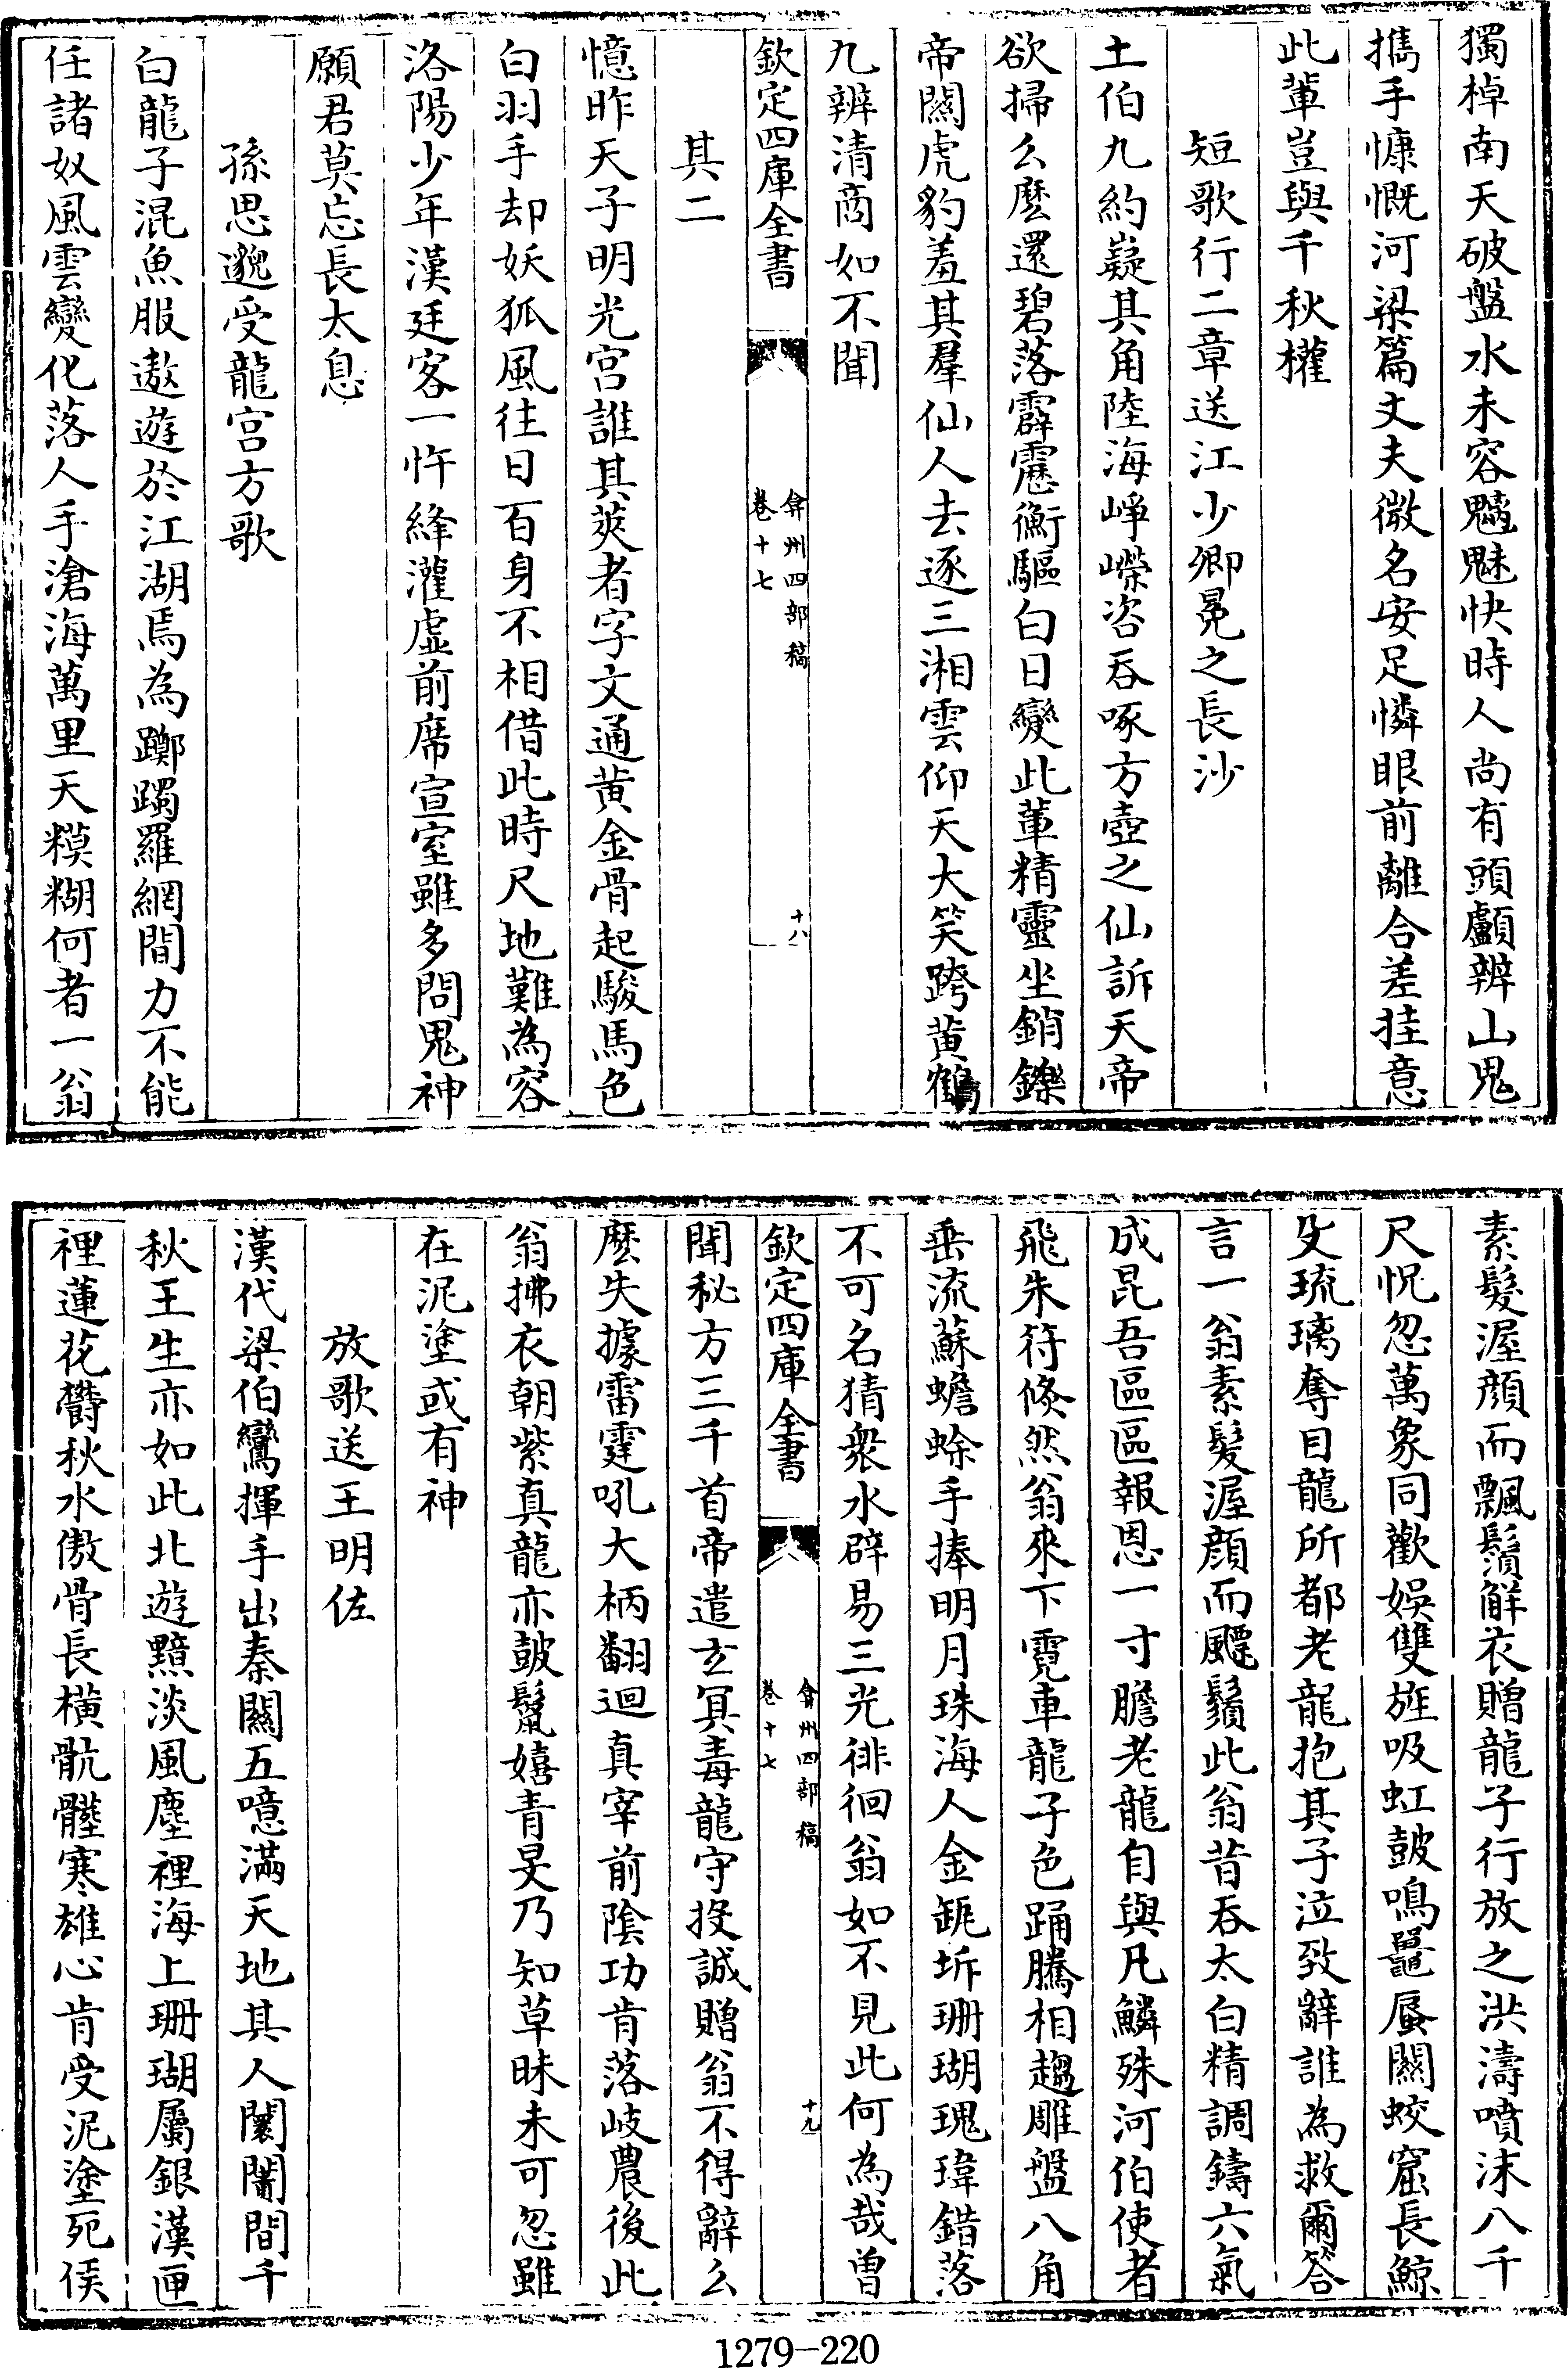 獨棹南天破盤水未容魑魅快時人尚有頭顱辨山鬼
攜手慷慨河梁篇丈夫微名安足憐眼前離合差挂意
此軰豈與千秋權
短歌行二章送江少卿冕之長沙
土伯九約嶷其角陸海崢嶸咨吞啄方壺之仙訴天帝
欲掃么麽還碧落霹靂衝驅白日變此軰精靈坐銷鑠
帝闕虎豹羞其羣仙人去逐三湘雲仰天大笑跨黄鶴
九辨清商如不聞
欽定四庫全書
弇州四部稿
卷十七
十八
其二
憶昨天子明光宫誰其䇿者字文通黄金骨起駿馬色
白羽手却妖狐風往日百身不相借此時尺地難為容
洛陽少年漢廷客一忤絳灌虛前席宣室雖多問鬼神
願君莫忘長太息
孫思邈受龍宫方歌
白龍子混魚服遨遊於江湖焉為躑躅羅網間力不能
任諸奴風雲變化落人手滄海萬里天糢糊何者一翁
素髮渥顔而飄鬚解衣贈龍子行放之洪濤噴沫八千
尺怳忽萬象同歡娛雙旌吸虹鼓鳴鼉蜃闕蛟窟長鯨
殳琉璃奪目龍所都老龍抱其子泣致辭誰為救爾答
言一翁素髮渥顔而飄鬚此翁昔吞太白精調鑄六氣
成昆吾區區報恩一寸膽老龍自與凡鱗殊河伯使者
飛朱符倏然翁來下霓車龍子色踊騰相趨雕盤八角
垂流蘇蟾蜍手捧明月珠海人金鈚坼珊瑚瑰瑋錯落
不可名猜衆水辟易三光徘徊翁如不見此何為哉曽
欽定四庫全書
弇州四部稿
卷十七
十九
聞秘方三千首帝遣玄冥毒龍守投誠贈翁不得辭么
麽失據雷霆吼大柄翻迴真宰前隂功肯落岐農後此
翁拂衣朝紫真龍亦鼓鬛嬉青旻乃知草昧未可忽雖
在泥塗或有神
放歌送王明佐
漢代梁伯鸞揮手出秦關五噫滿天地其人闤闠間千
秋王生亦如此北遊黯淡風塵裡海上珊瑚屬銀漢匣
裡蓮花欝秋水傲骨長橫骯髒寒雄心肯受泥塗死侯
1279-220